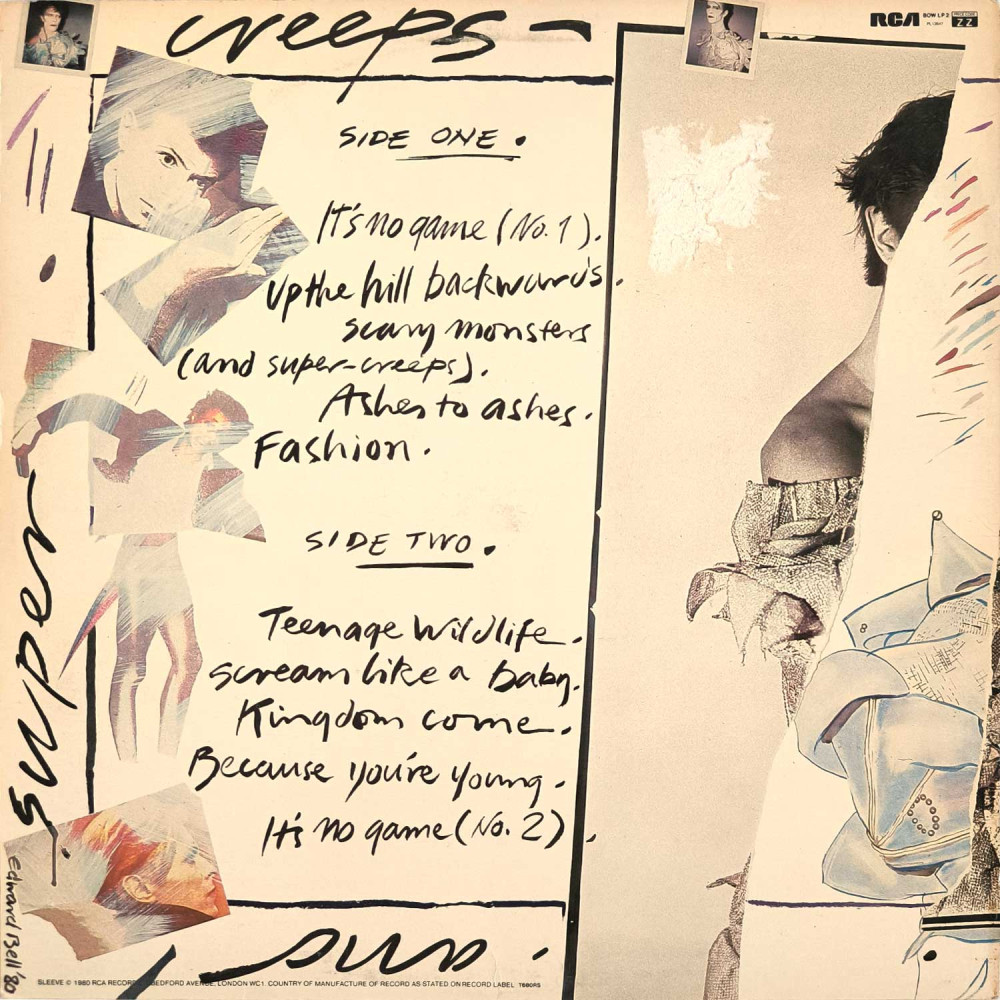 creeps-
RCA BOW LP 2
PL 13647
ZZ
SIDE ONE.
It's no game (No. 1).
Up the hill backwards.
scary monsters
(and super-creeps).
Ashes to ashes.
Fashion.
SIDE TWO.
Teenage Wildlife.
scream like a baby.
Kingdom come.
Because you're young.
It's no game (No. 2).
super
and
Edward Bell '80
SLEEVE © 1980 RCA RECORDS BEDFORD AVENUE, LONDON WC1. COUNTRY OF MANUFACTURE OF RECORD AS STATED ON RECORD LABEL